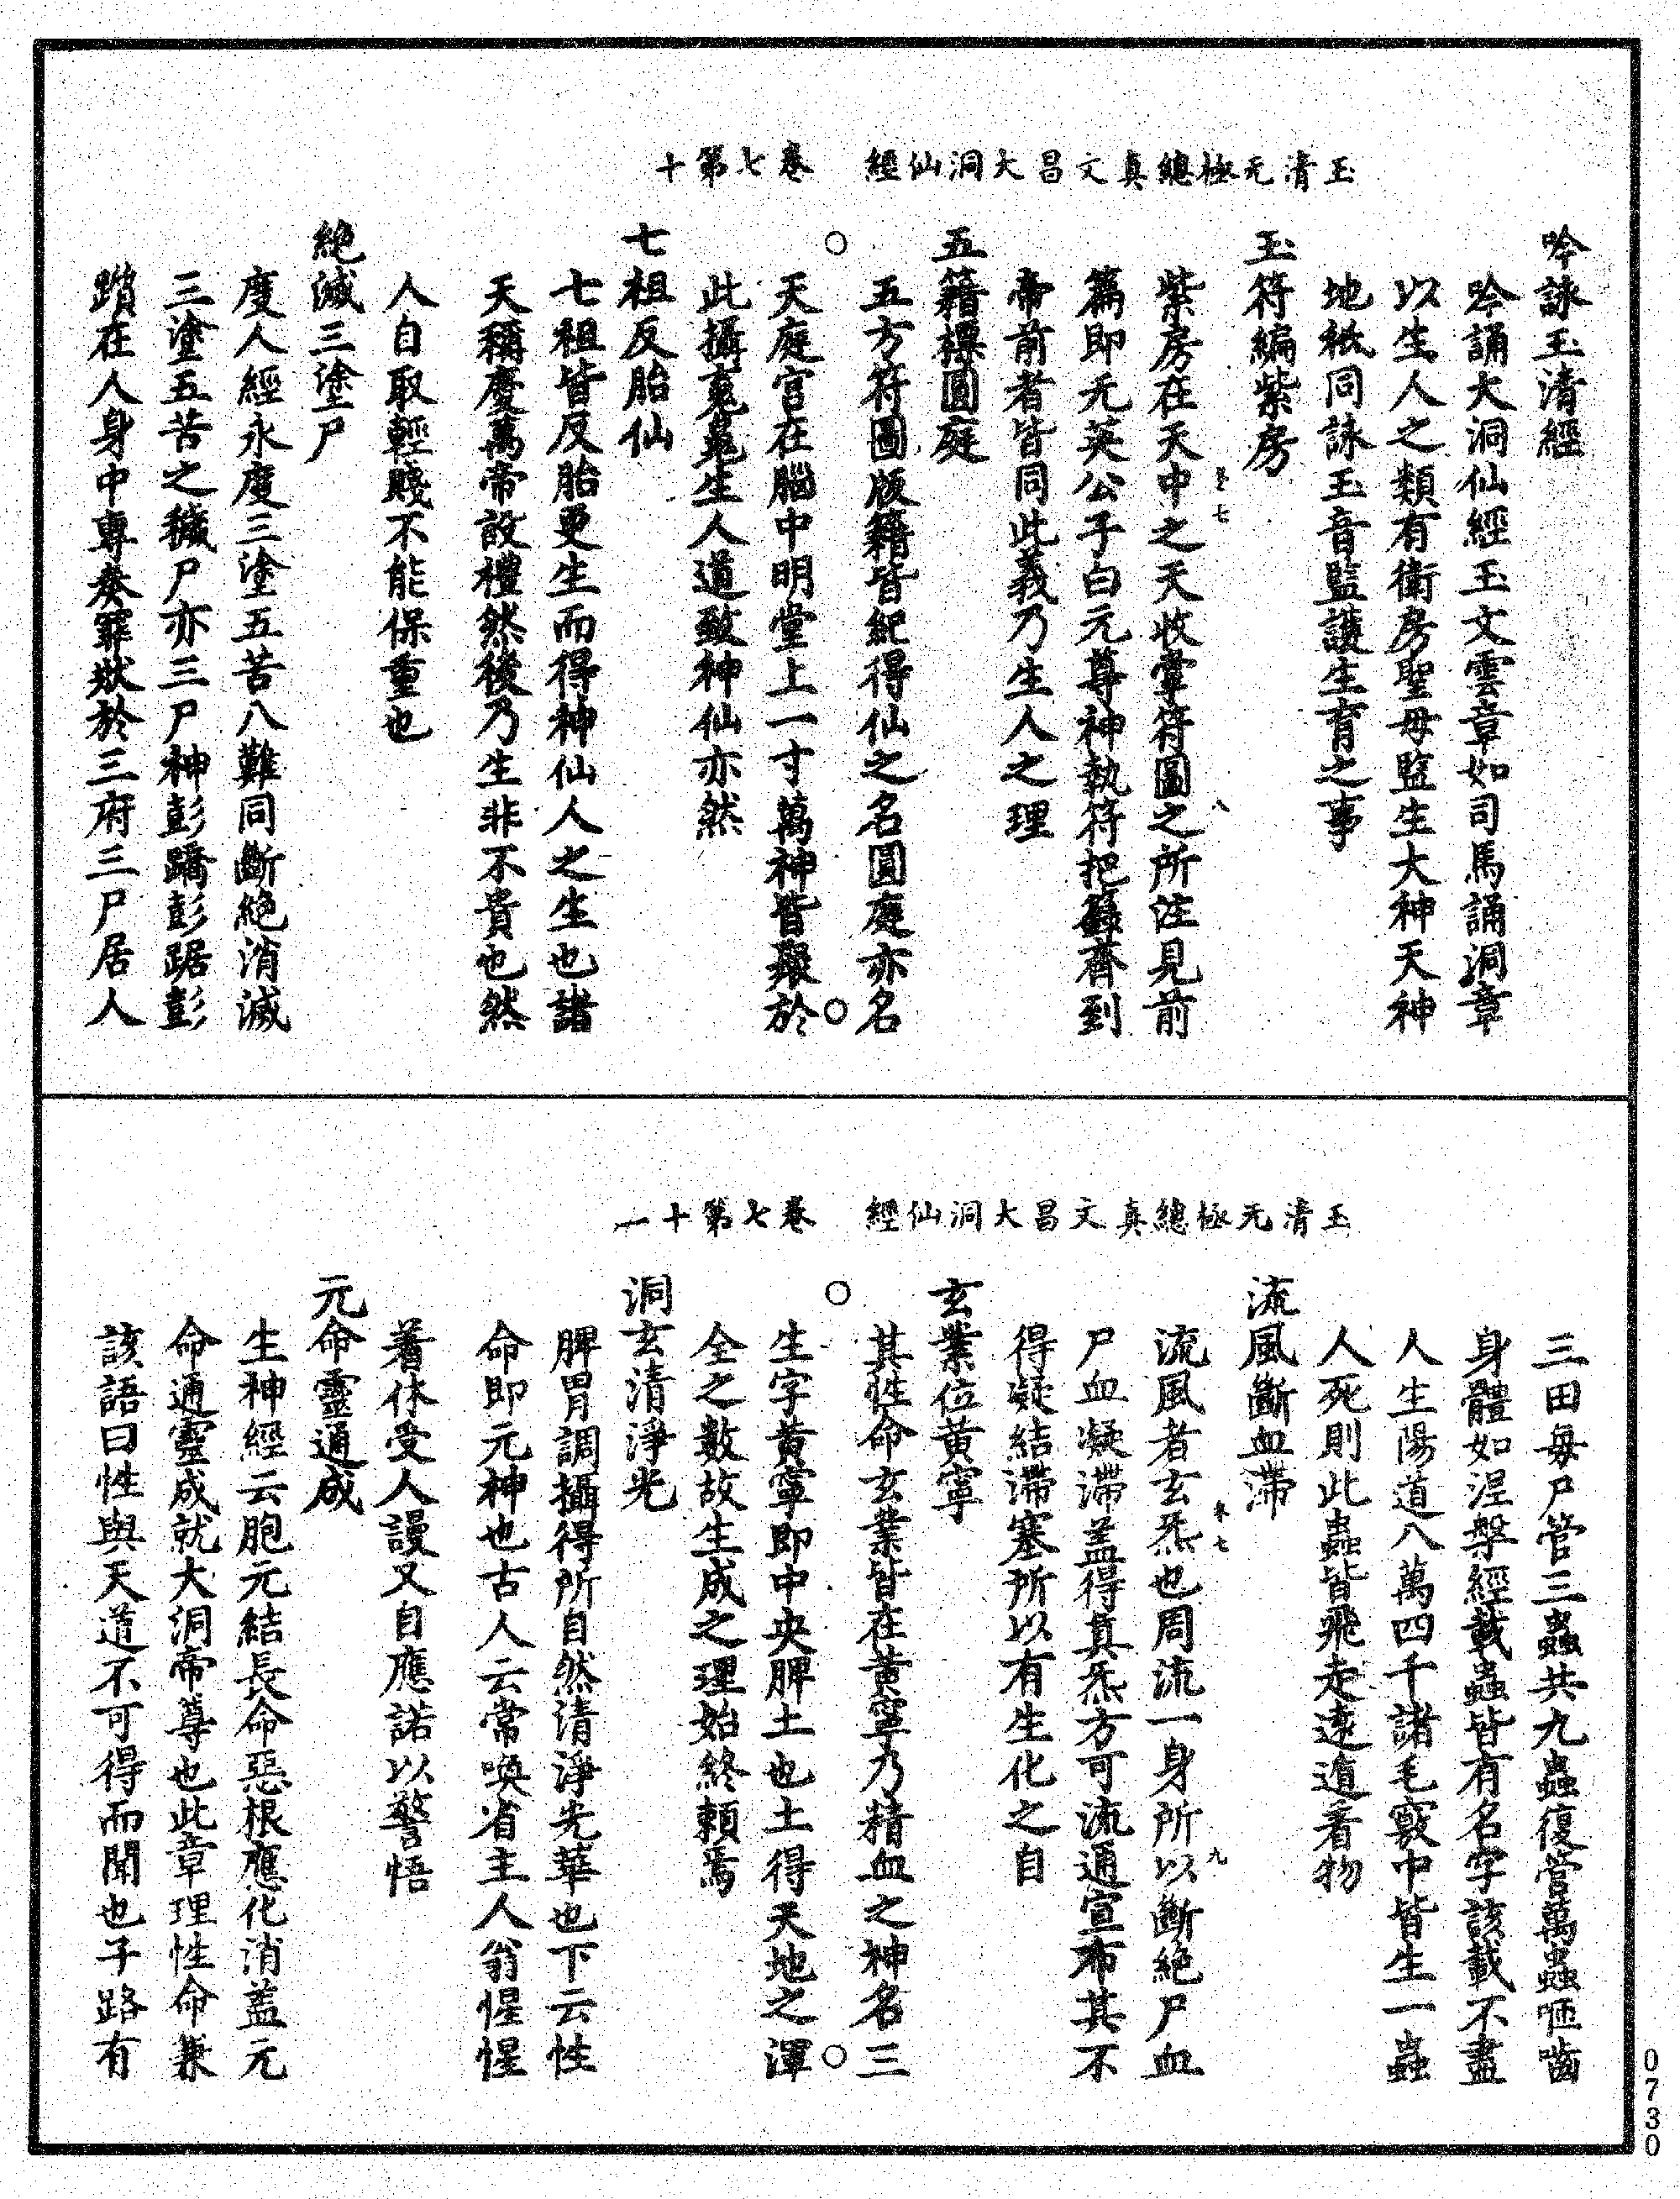 玉清无極總真文昌大洞仙經　卷七第十
吟詠玉清經
吟誦大洞仙經玉文雲章如司馬誦洞章
以生人之類有衛房聖母監生大神天神
地祇同詠玉音監護生育之事
玉符編紫房
紫房在天中之天收掌符圖之所注見前
篇即无英公子白元尊神執符把籙齎到
帝前者皆同此義乃生人之理
五籍標圓庭
五方符圖版籍皆紀得仙之名圓庭亦名
天庭官在腦中明堂上一寸萬神皆聚於
此攝䰟𩲸生人道致神仙亦然
七祖反胎仙
七祖皆反胎更生而得神仙人之生也諸
天稱慶萬帝設禮然後乃生非不貴也然
人自取輕賤不能保重也
絶滅三塗尸
度人經永度三塗五苦八難同斷絶消滅
三塗五苦之穢尸亦三尸神彭躋彭踞彭
躓在人身中專奏罪狀於三府三尸居人
卷七
八
玉清无極總真文昌大洞仙經　卷七第十一
三田每尸管三蟲共九蟲復管萬蟲咂嚙
身體如涅槃經載蟲皆有名字該載不盡
人生陽道八萬四千諸毛竅中皆生一蟲
人死則此蟲皆飛走遠遁着物
流風斷血滯
流風者玄炁也周流一身所以斷絶尸血
尸血凝滯盖得真炁方可流通宣布其不
得凝結滯塞所以有生化之自
玄業位黄寧
其性命玄業皆在黄寧乃精血之神名三
生字黄寧即中央脾土也土得天地之渾
全之數故生成之理始終頼焉
洞玄清淨光
脾胃調攝得所自然清淨光華也下云性
命即元神也古人云常喚省主人翁惺惺
着休受人謾又自應諾以警悟
元命靈通成
生神經云胞元結長命惡根應化消盖元
命通靈成就大洞帝尊也此章理性命兼
該語曰性與天道不可得而聞也子路有
卷七
九
0730